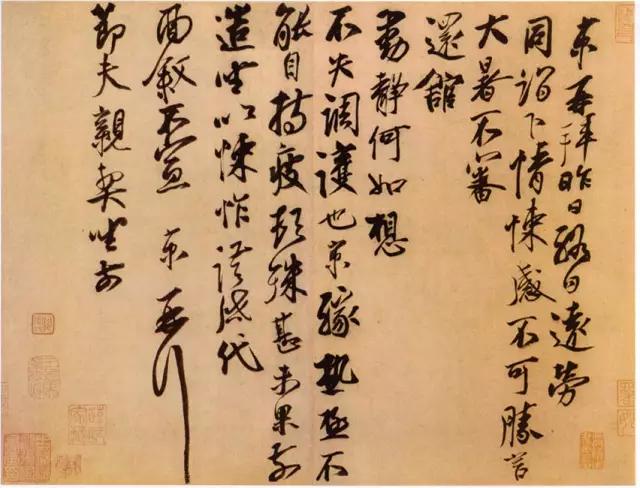 京再拜昨日終日遠勞
同詣下情悚感不可勝言
大暑不審
還館
動靜何如想
不失調護也京緣熱極不
能自持疲頓殊甚未果前
造坐次悚怍謹啓代
面敘不宣京再拜
節夫親契坐前